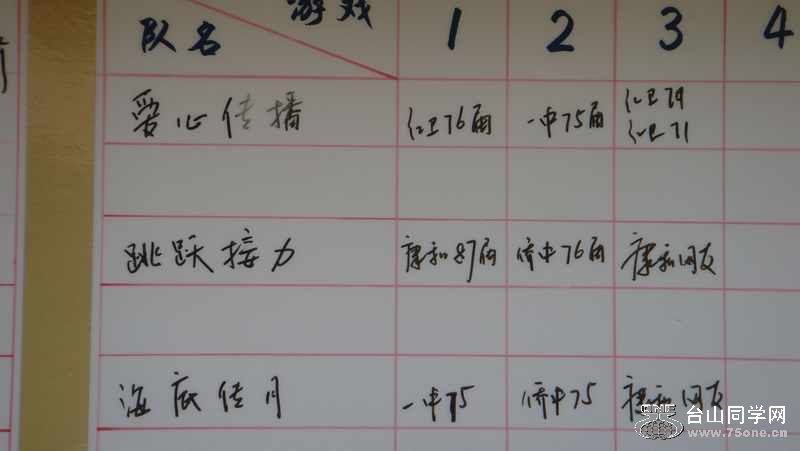 游戏
队名 1 2 3 4
爱心传播 红卫76届 一中75届 红卫79
红卫71
跳跃接力 康和87届 侨中76届 康和网友
海底传月 一中75 侨中75 康和网友
台山同学网
www.75one.cn